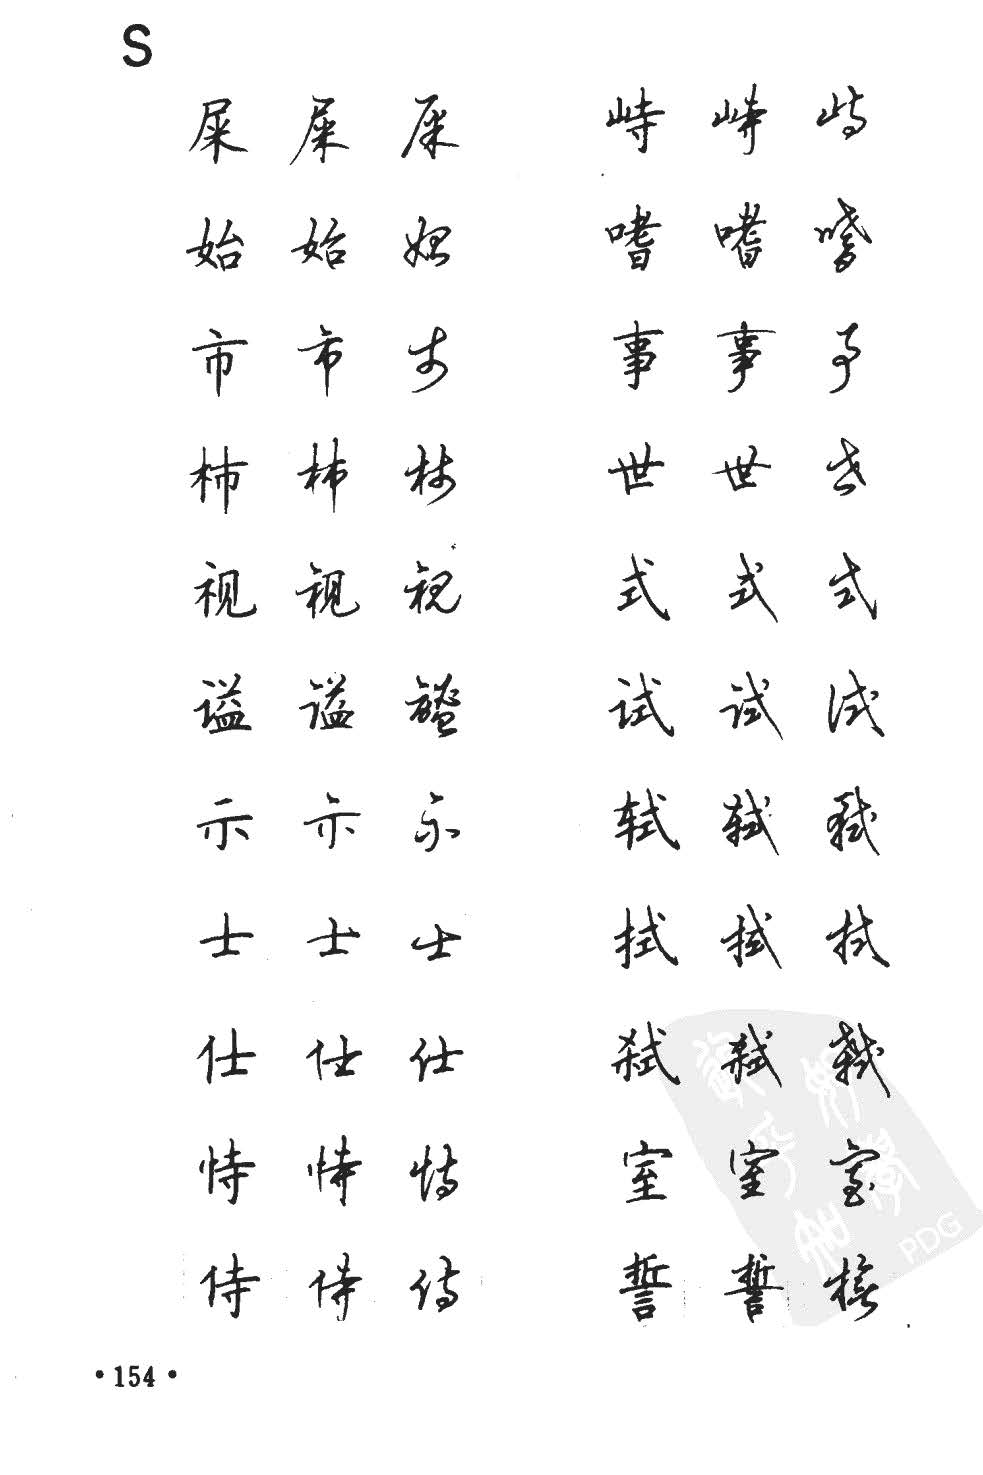 S
屎 屎 屎 峙 峙 峙
始 始 始 嗜 嗜 嗜
市 市 市 事 事 事
柿 柿 柿 世 世 世
视 视 视 式 式 式
谥 谥 谥 试 试 试
示 示 示 轼 轼 轼
士 士 士 拭 拭 拭
仕 仕 仕 弑 弑 弑
恃 恃 恃 室 室 室
侍 侍 侍 誓 誓 誓
PDG
·154·